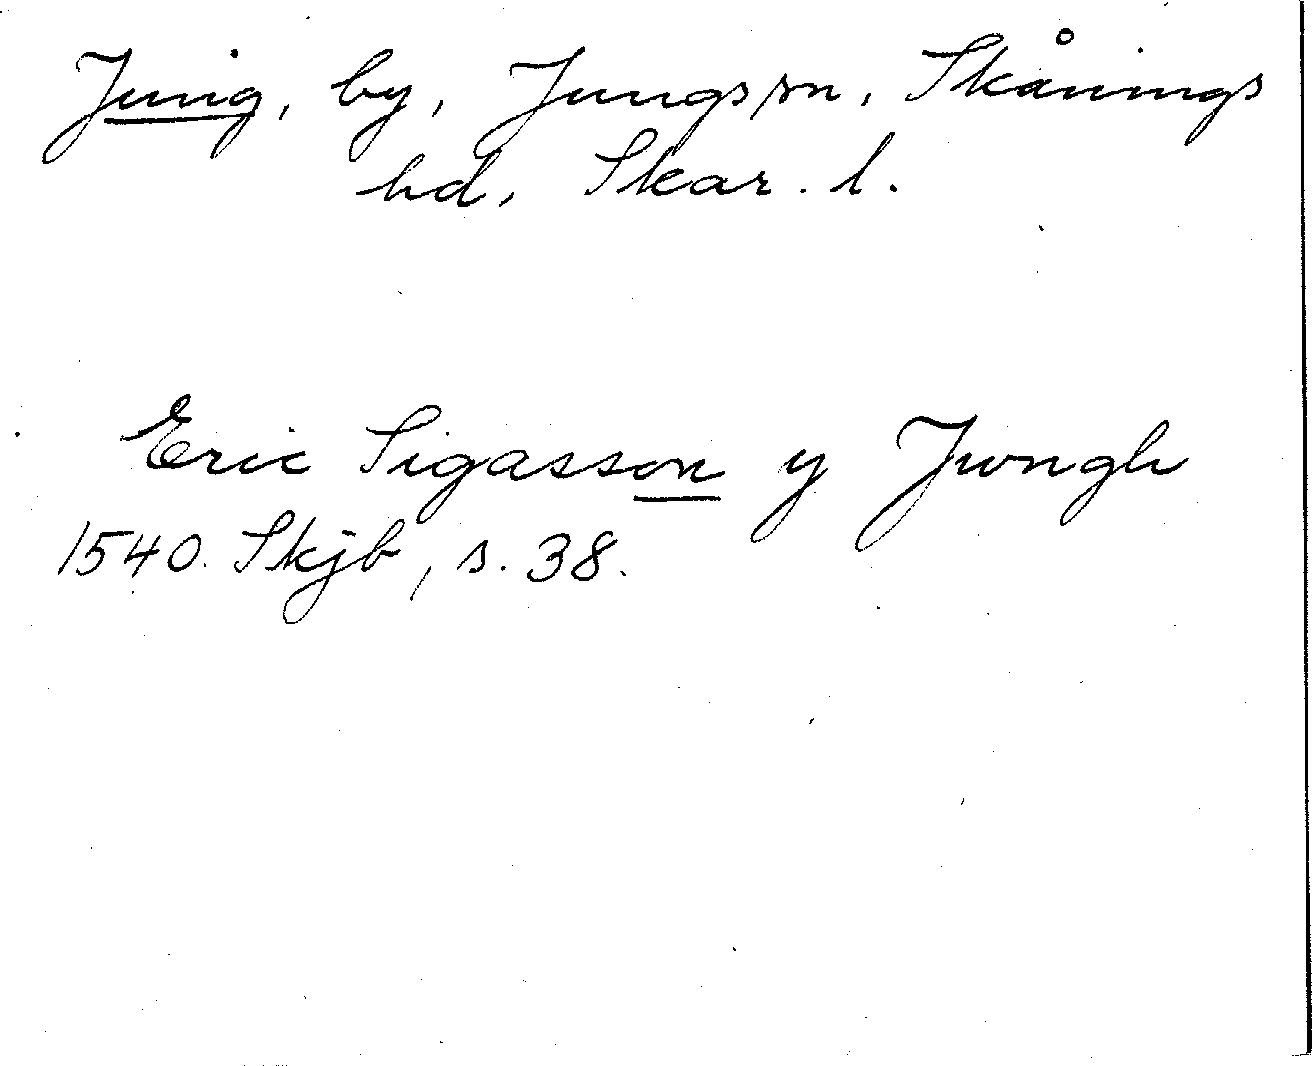 Jung, by, Jungs sn, Skånings
hd, Skar. l.
Eric Sigasson y Jwngh
1540. Skjb, s. 38.